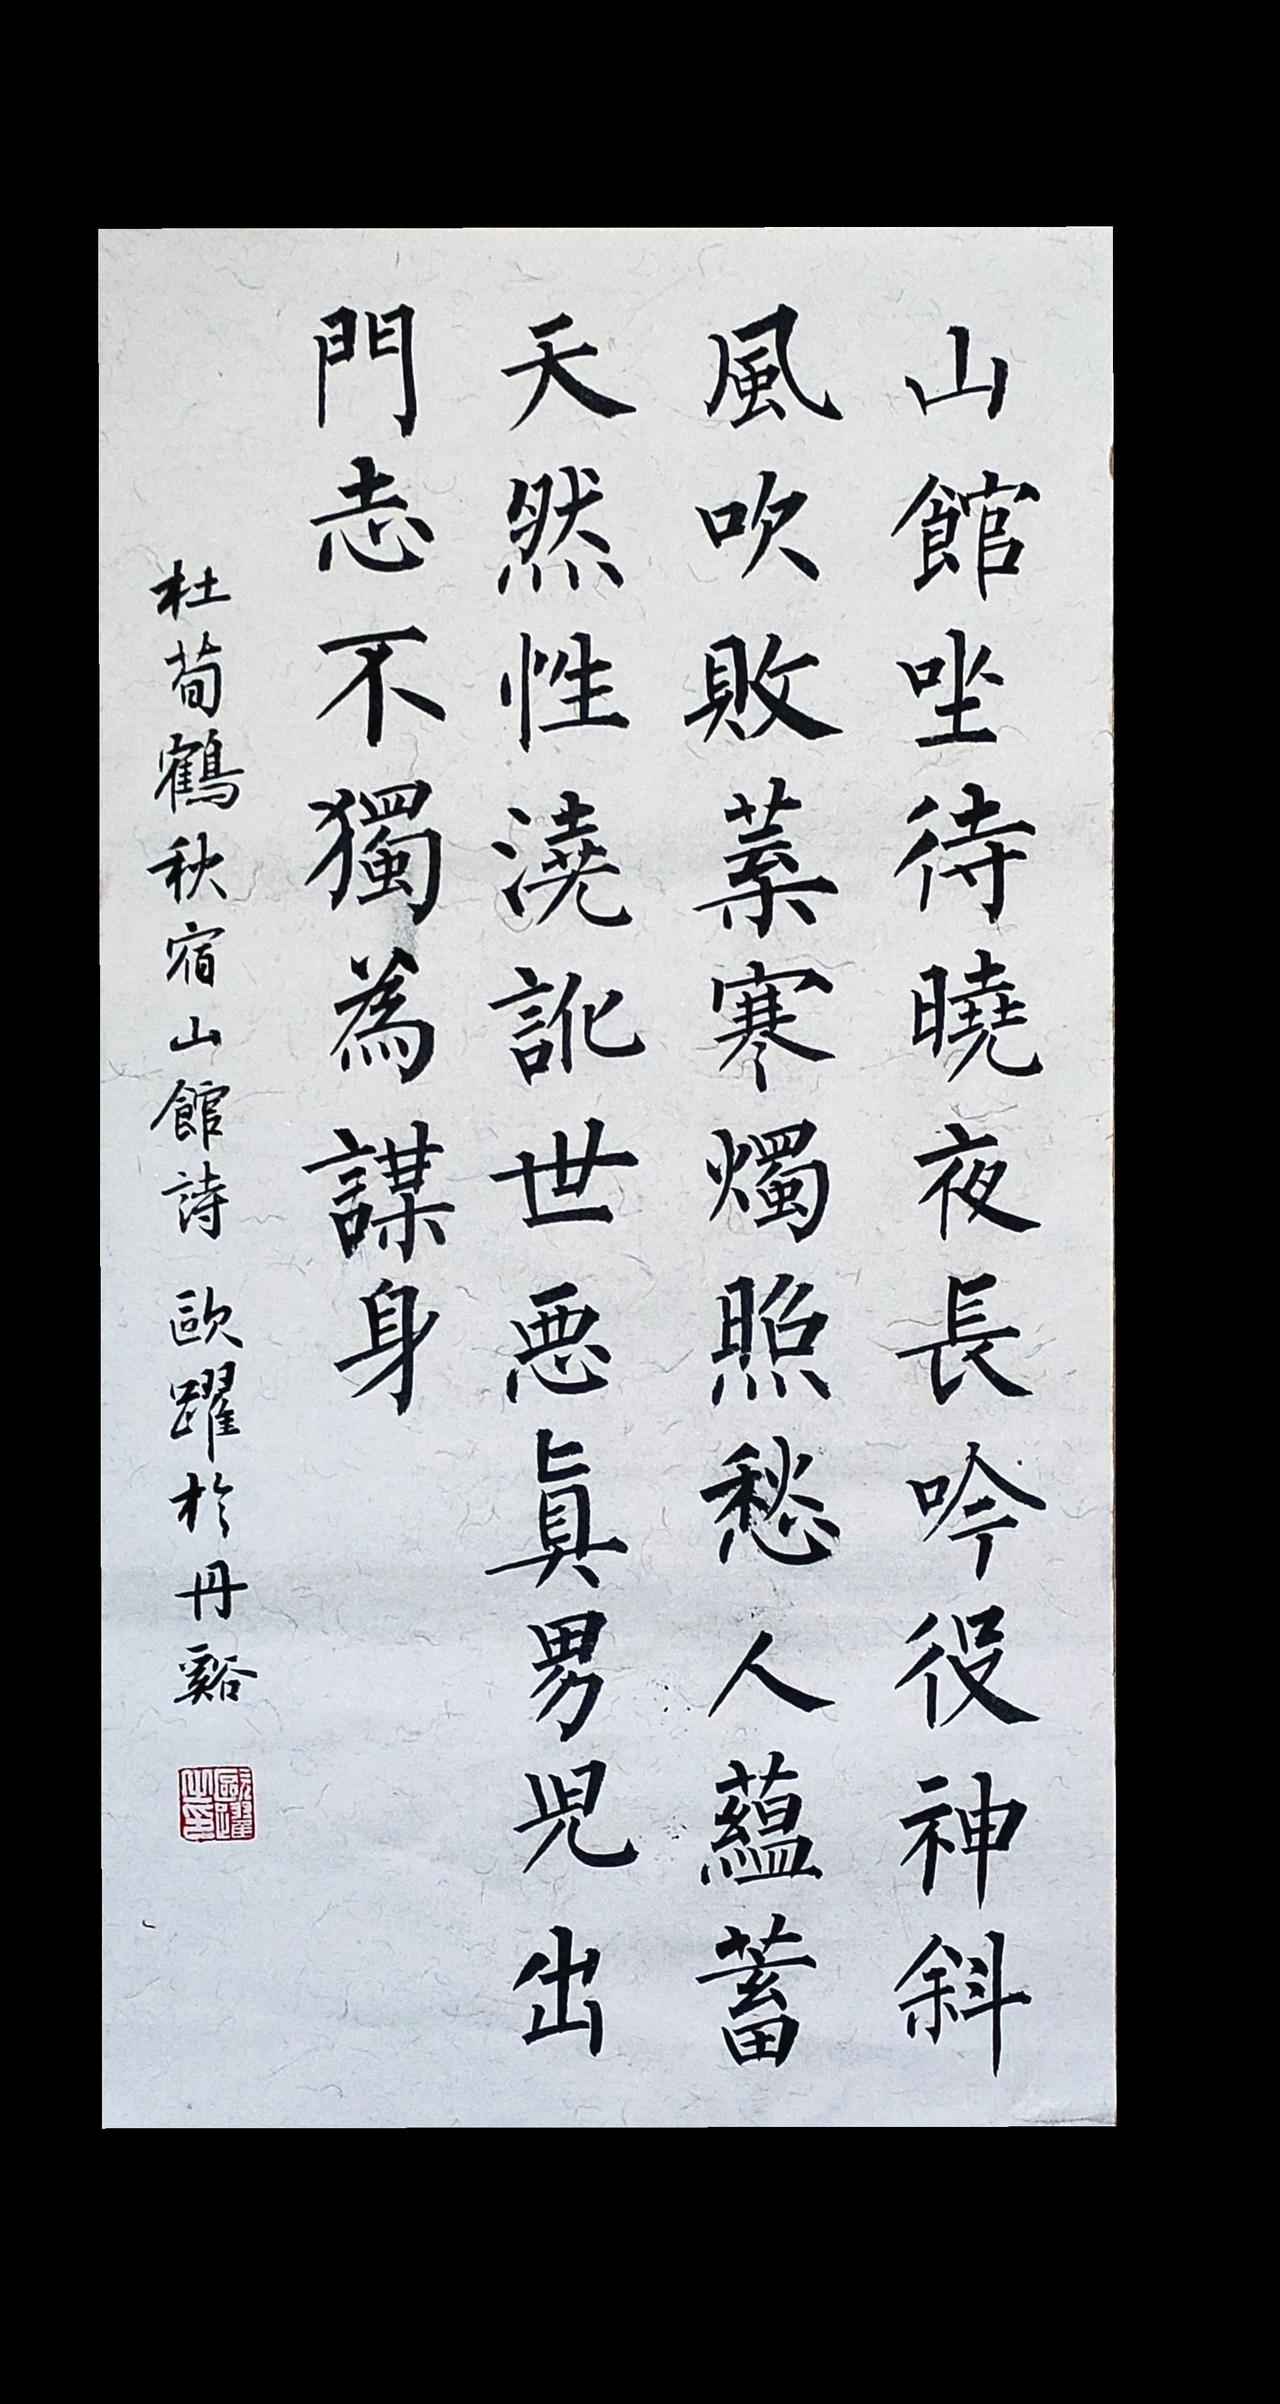 山館坐待曉夜長吟役神斜
風吹敗葉寒燭照愁人蘊蓄
天然性澆訛世惡真男兒出
門志不獨為謀身
杜荀鶴秋宿山館詩 歐躍於丹谿
歐躍之印